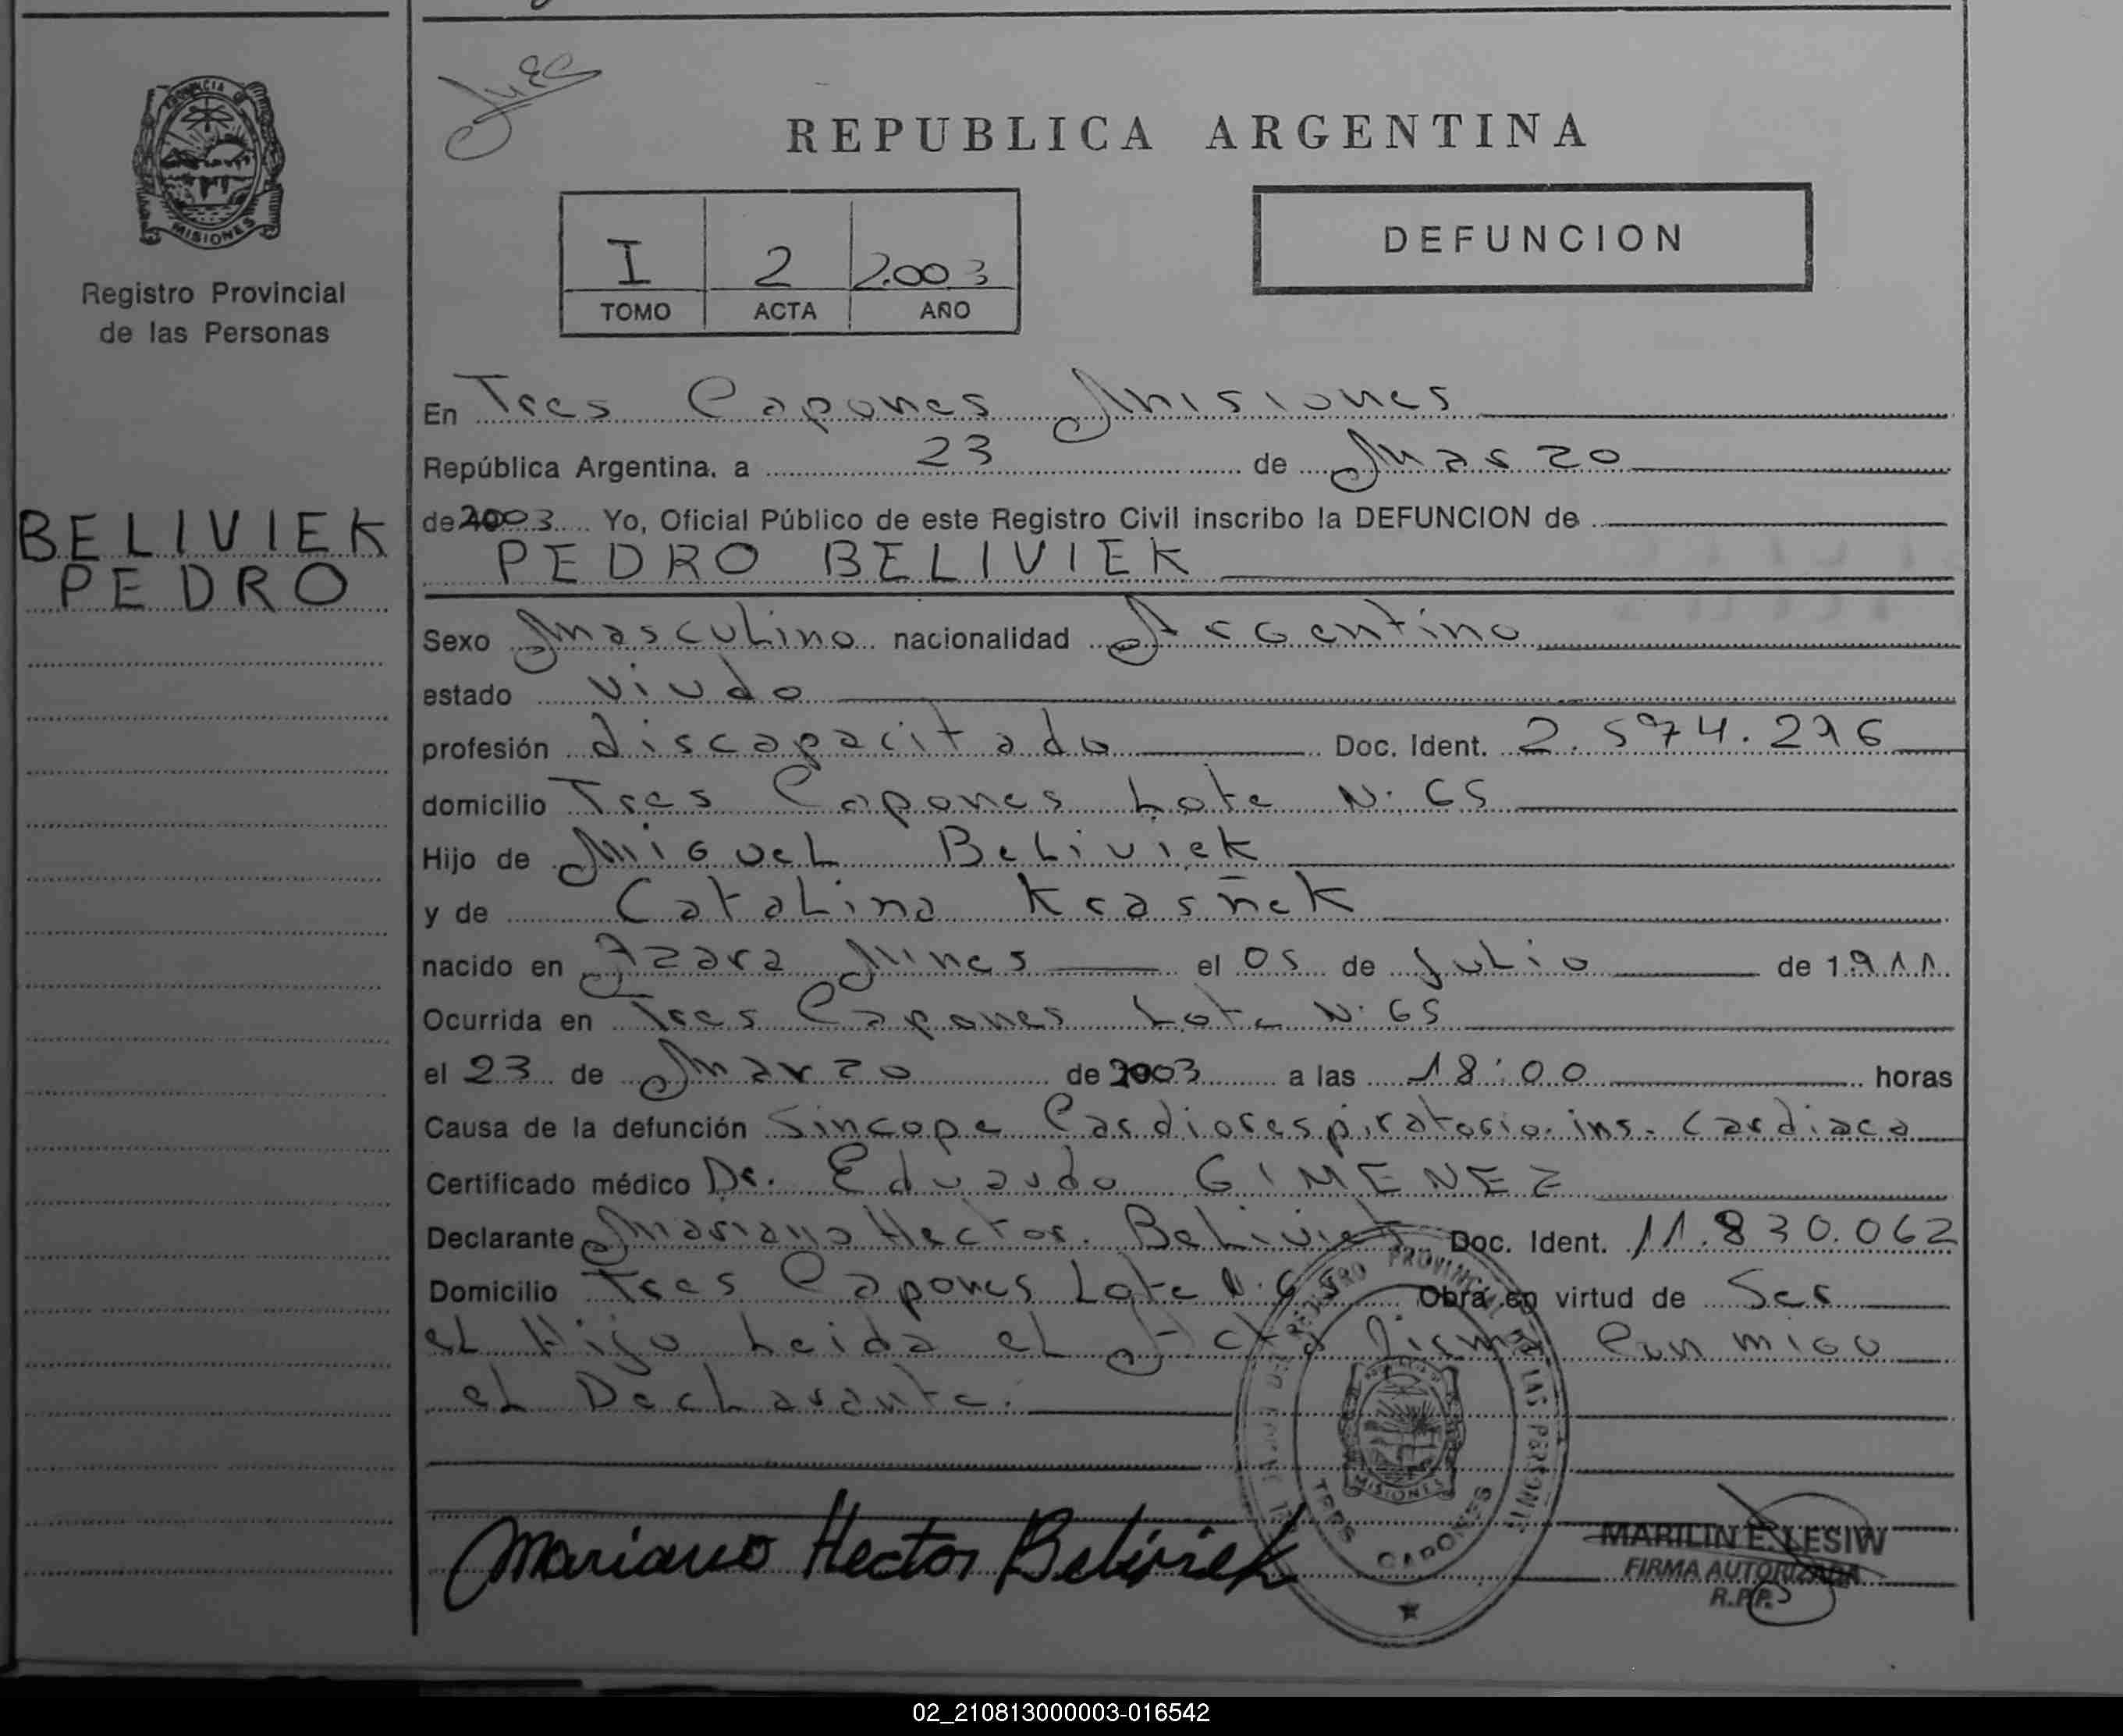 PROVINCIA DE
MISIONES
Registro Provincial
de las Personas
BELIVIEK
PEDRO
REPUBLICA ARGENTINA
I 2 2.003
TOMO ACTA AÑO
DEFUNCION
En Tres Capones Misiones
República Argentina. a 23 de Marzo
de 2003 Yo, Oficial Público de este Registro Civil inscribo la DEFUNCION de
PEDRO BELIVIEK
Sexo Masculino nacionalidad Argentino
estado viudo
profesión discapacitado Doc. Ident. 2.574.276
domicilio Tres Capones Lote N. 65
Hijo de Miguel Beliviek
y de Catalina Krasñek
nacido en Azara Mnes el 05 de Julio de 1911
Ocurrida en Tres Capones Lote N. 65
el 23 de Marzo de 2003 a las 18:00 horas
Causa de la defunción Sincope Cardiorespiratorio. ins. cardiaca
Certificado médico Dr. Eduardo GIMENEZ
Declarante Mariano Hector Beliviek Doc. Ident. 11.830.062
Domicilio Tres Capones Lote N. 65 Obra en virtud de Ser
el Hijo Leida el Acta firma Conmigo
el Declarante.
PROVINCIAL DE LAS PERSONAS
MISIONES
TRES CAPONES
Mariano Hector Beliviek
MARILIN E. LESIW
FIRMA AUTORIZADA
R.P.P.
02_210813000003-016542